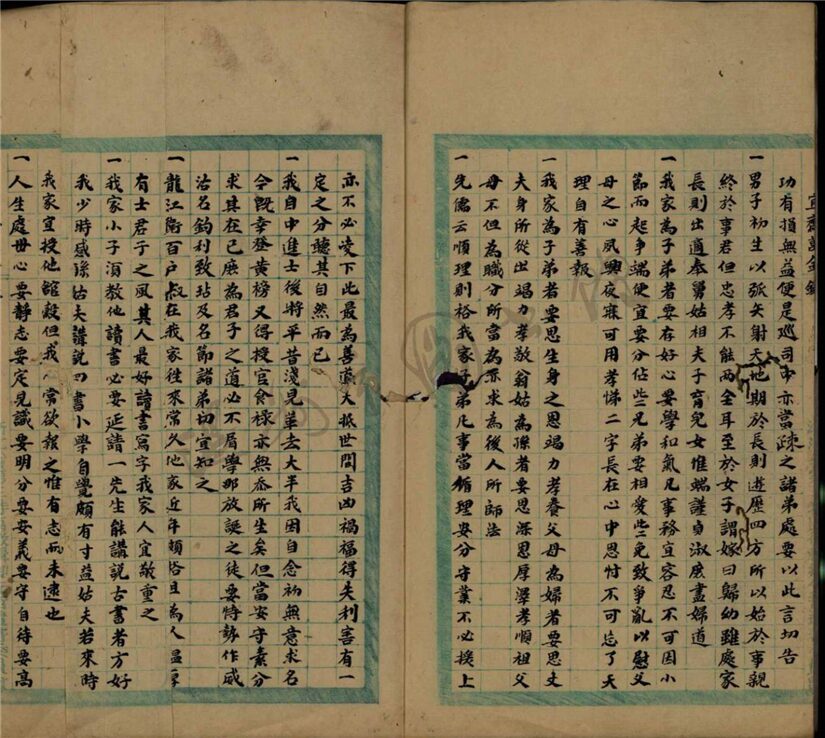 功有損無益便是巡司中亦當疎之諸弟處要以此言切告
一男子初生以弧矢射天地期於長則遊歷四方所以始於事親
終於事君但忠孝不能兩全耳至於女子謂嫁曰歸幼雖處家
長則出適奉舅姑相夫子育兒女惟端謹貞淑庶盡婦道
一我家為子弟者要存好心要學和氣凡事務宜容忍不可因小
節而起爭端便宜要分佔些兄弟要相愛些免致爭亂以慰父
母之心夙興夜寐可用孝悌二字長在心中思忖不可忘了天
理自有善報
一我家為子弟者要思生身之恩竭力孝養父母為婦者要思丈
夫身所從出竭力孝敬翁姑為孫者要思深恩厚澤孝順祖父
母不但為職分所當為亦求為後人所師法
一先儒云順理則裕我家子弟凡事當循理安分守業不必援上
亦不必凌下此最為善道大抵世間吉凶禍福得失利害有一
定之分聽其自然而已
一我自中進士後將平昔淺見革去大半我因自念初無意求名
今既幸登黃榜又得授官食祿亦無忝所生矣但當安守素分
求其在已庶為君子之道必不屑學那放誕之徒要恃勢作威
沽名釣利致玷及名節諸弟切宜知之
一龍江衛百戶叔在我家徃來常久他家近年頗
有士君子之風其人最好讀書寫字我家人宜敬重之
一我家小子須教他讀書必要延請一先生能講説古書者方好
我少時感孫姑夫講説四書小學自覺頗有寸益姑夫若來時
我家宜授他館穀但我常欲報之惟有志而未逮也
一人生處世心要靜志要定見識要明分要安義要守自待要高